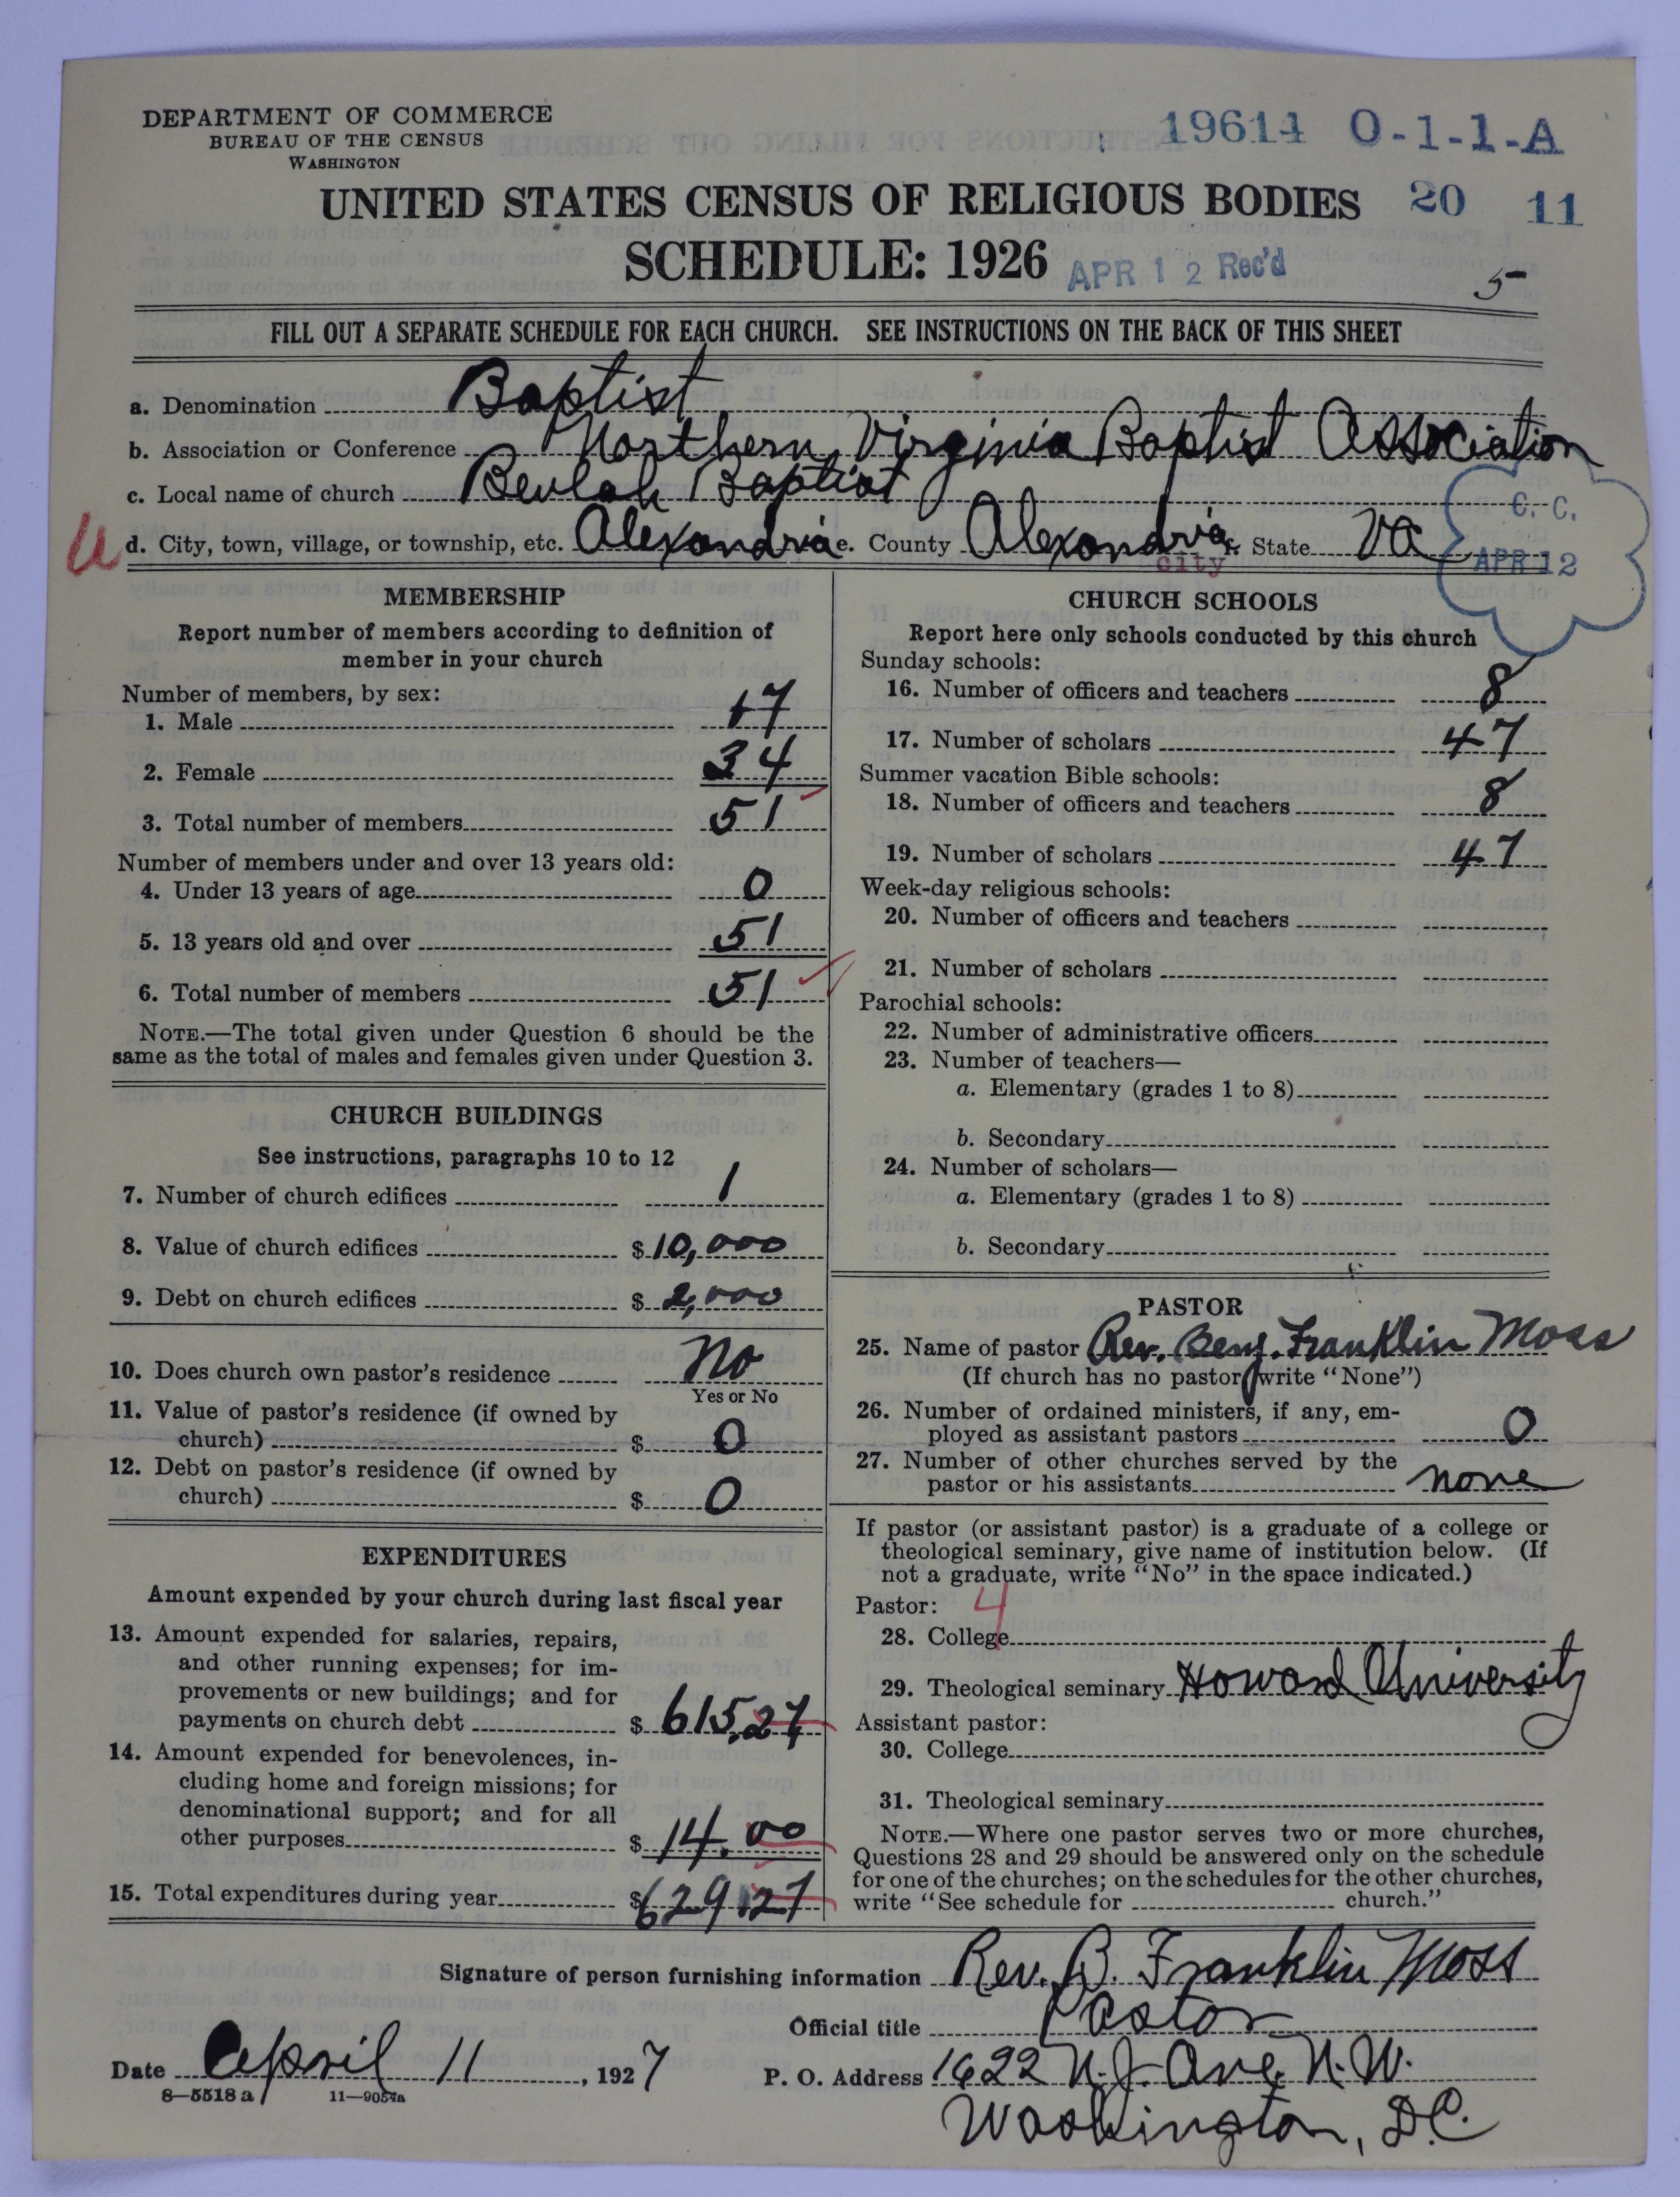 DEPARTMENT OF COMMERCE
BUREAU OF THE CENSUS
WASHINGTON
19614 O-1-1-A
UNITED STATES CENSUS OF RELIGIOUS BODIES 20 11
SCHEDULE: 1926 APR 12 Rec'd 5
FILL OUT A SEPARATE SCHEDULE FOR EACH CHURCH. SEE INSTRUCTIONS ON THE BACK OF THIS SHEET
a. Denomination Baptist
b. Association or Conference Northern Virginia Baptist Association
c. Local name of church Beulah Baptist
d. City, town, village, or township, etc. Alexandria e. County Alexandria f. State Va
city
C. C.
APR 12
MEMBERSHIP
Report number of members according to definition of
member in your church
Number of members, by sex:
1. Male 17
2. Female 34
3. Total number of members 51
Number of members under and over 13 years old:
4. Under 13 years of age 0
5. 13 years old and over 51
6. Total number of members 51
NOTE.—The total given under Question 6 should be the
same as the total of males and females given under Question 3.
CHURCH BUILDINGS
See instructions, paragraphs 10 to 12
7. Number of church edifices 1
8. Value of church edifices $10,000
9. Debt on church edifices $2,000
10. Does church own pastor's residence No
Yes or No
11. Value of pastor's residence (if owned by
church) $ 0
12. Debt on pastor's residence (if owned by
church) $ 0
EXPENDITURES
Amount expended by your church during last fiscal year
13. Amount expended for salaries, repairs,
and other running expenses; for im-
provements or new buildings; and for
payments on church debt $ 615.27
14. Amount expended for benevolences, in-
cluding home and foreign missions; for
denominational support; and for all
other purposes $ 14.00
15. Total expenditures during year $629.27
CHURCH SCHOOLS
Report here only schools conducted by this church
Sunday schools:
16. Number of officers and teachers 8
17. Number of scholars 47
Summer vacation Bible schools:
18. Number of officers and teachers 8
19. Number of scholars 47
Week-day religious schools:
20. Number of officers and teachers
21. Number of scholars
Parochial schools:
22. Number of administrative officers
23. Number of teachers—
a. Elementary (grades 1 to 8)
b. Secondary
24. Number of scholars—
a. Elementary (grades 1 to 8)
b. Secondary
PASTOR
25. Name of pastor Rev. Benj. Franklin Moss
(If church has no pastor write "None")
26. Number of ordained ministers, if any, em-
ployed as assistant pastors 0
27. Number of other churches served by the
pastor or his assistants none
If pastor (or assistant pastor) is a graduate of a college or
theological seminary, give name of institution below. (If
not a graduate, write "No" in the space indicated.)
Pastor: 4
28. College
29. Theological seminary Howard University
Assistant pastor:
30. College
31. Theological seminary
NOTE.—Where one pastor serves two or more churches,
Questions 28 and 29 should be answered only on the schedule
for one of the churches; on the schedules for the other churches,
write "See schedule for church."
Signature of person furnishing information Rev. B. Franklin Moss
Official title Pastor
Date April 11, 1927 P. O. Address 1622 N.J. Ave. N.W.
8—5518 a 11—9054a
Washington, D.C.